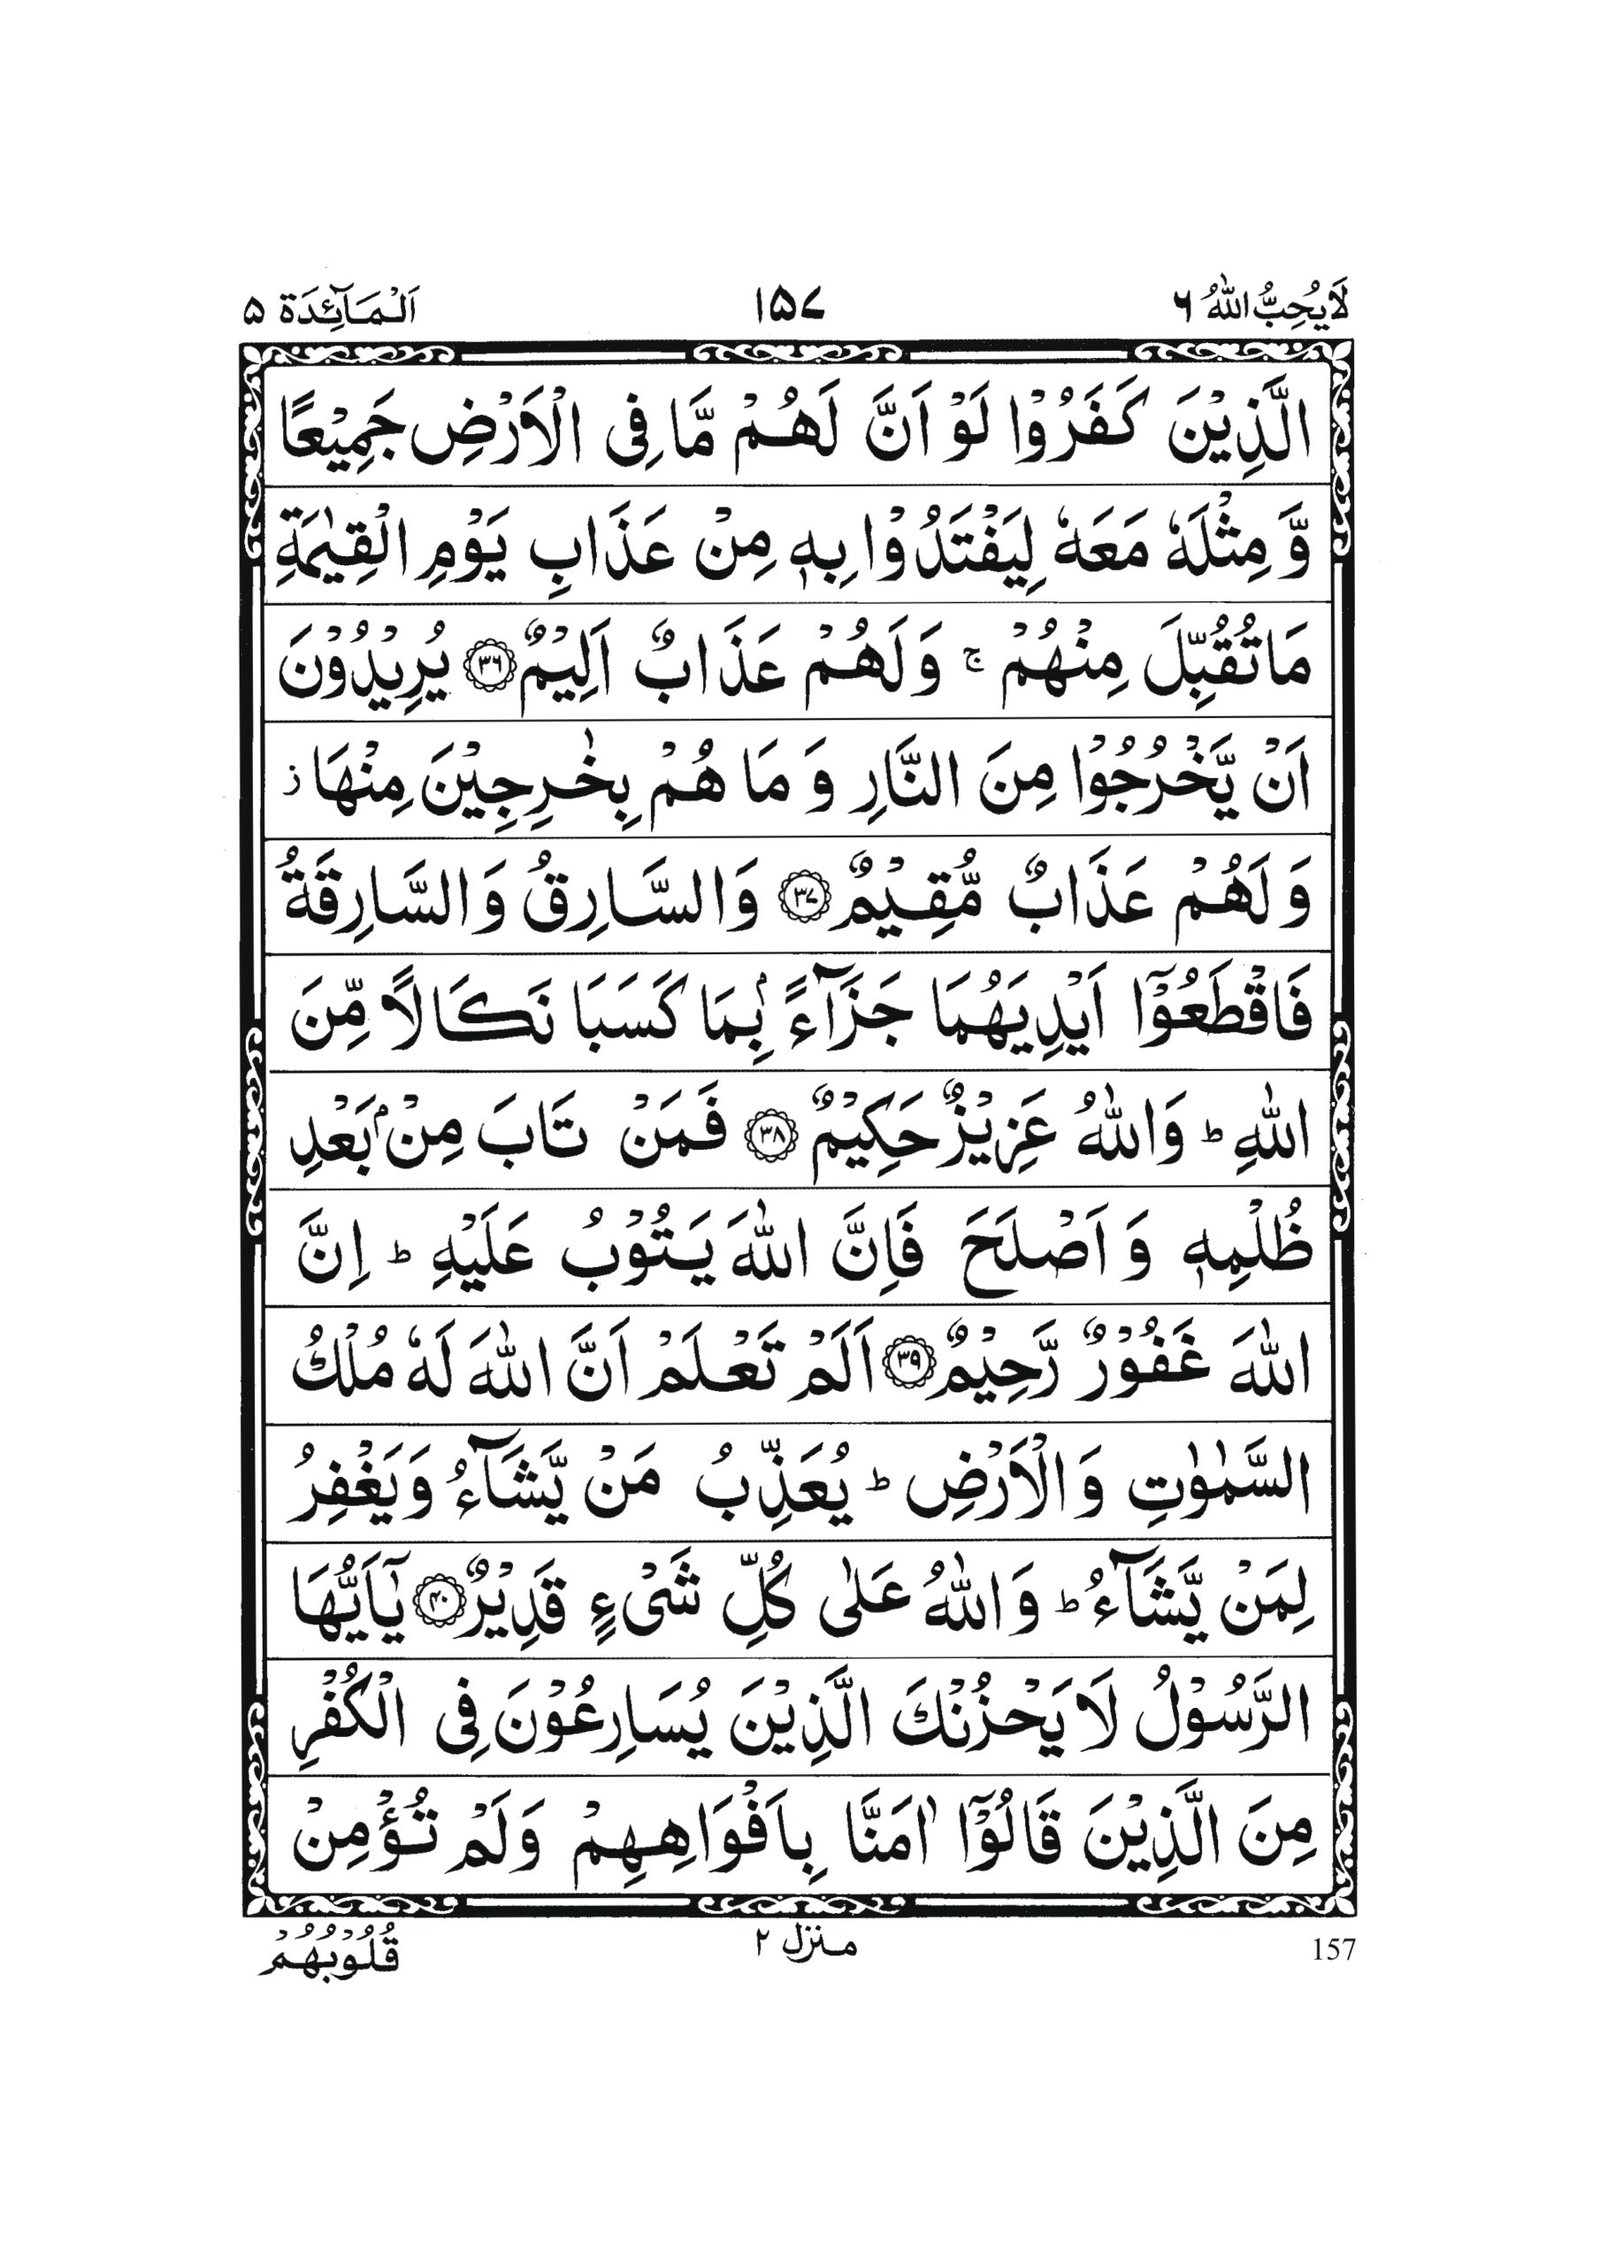 لَا يُحِبُّ اللّٰهُ ٦
١٥٧
اَلْمَآئِدَة ٥
الَّذِيْنَ كَفَرُوْا لَوْ اَنَّ لَهُمْ مَّا فِى الْاَرْضِ جَمِيْعًا
وَّ مِثْلَهٗ مَعَهٗ لِيَفْتَدُوْا بِهٖ مِنْ عَذَابِ يَوْمِ الْقِيٰمَةِ
مَا تُقُبِّلَ مِنْهُمْ ۚ وَلَهُمْ عَذَابٌ اَلِيْمٌ ﴿٣٦﴾ يُرِيْدُوْنَ
اَنْ يَّخْرُجُوْا مِنَ النَّارِ وَ مَا هُمْ بِخٰرِجِيْنَ مِنْهَا ز
وَلَهُمْ عَذَابٌ مُّقِيْمٌ ﴿٣٧﴾ وَالسَّارِقُ وَالسَّارِقَةُ
فَاقْطَعُوْٓا اَيْدِيَهُمَا جَزَآءًۢ بِمَا كَسَبَا نَكَالًا مِّنَ
اللّٰهِ ؕ وَاللّٰهُ عَزِيْزٌ حَكِيْمٌ ﴿٣٨﴾ فَمَنْ تَابَ مِنْۢ بَعْدِ
ظُلْمِهٖ وَ اَصْلَحَ فَاِنَّ اللّٰهَ يَتُوْبُ عَلَيْهِ ؕ اِنَّ
اللّٰهَ غَفُوْرٌ رَّحِيْمٌ ﴿٣٩﴾ اَلَمْ تَعْلَمْ اَنَّ اللّٰهَ لَهٗ مُلْكُ
السَّمٰوٰتِ وَالْاَرْضِ ؕ يُعَذِّبُ مَنْ يَّشَآءُ وَيَغْفِرُ
لِمَنْ يَّشَآءُ ؕ وَاللّٰهُ عَلٰى كُلِّ شَىْءٍ قَدِيْرٌ ﴿٤٠﴾ يٰٓاَيُّهَا
الرَّسُوْلُ لَا يَحْزُنْكَ الَّذِيْنَ يُسَارِعُوْنَ فِى الْكُفْرِ
مِنَ الَّذِيْنَ قَالُوْٓا اٰمَنَّا بِاَفْوَاهِهِمْ وَلَمْ تُؤْمِنْ
157
منزل ٢
قُلُوْبُهُمْ